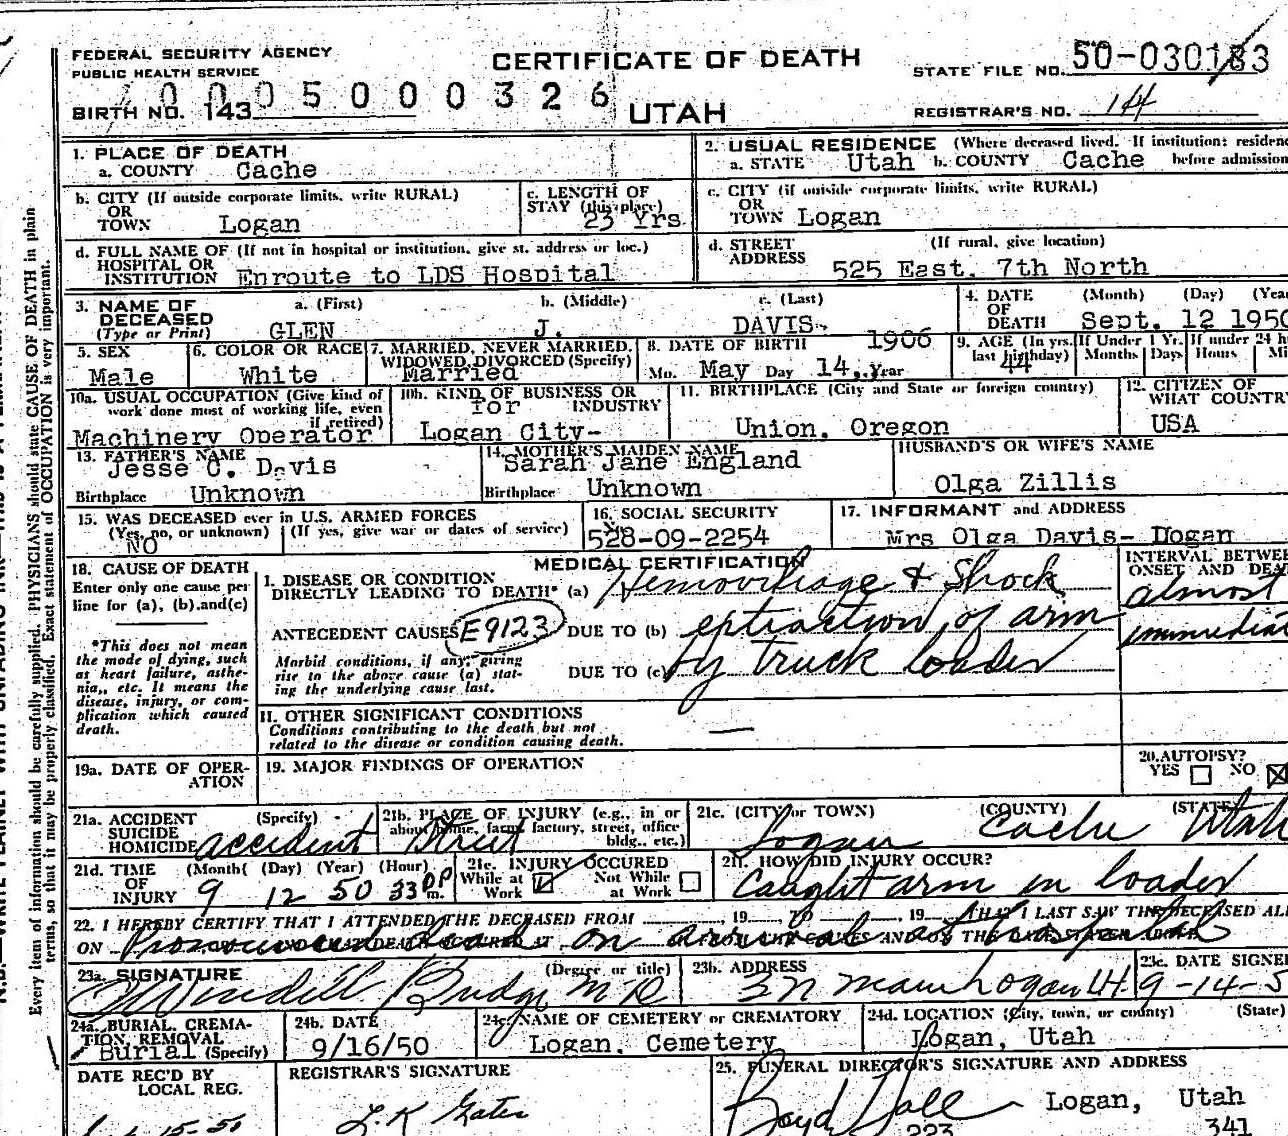 FEDERAL SECURITY AGENCY
PUBLIC HEALTH SERVICE
CERTIFICATE OF DEATH
STATE FILE NO. 50-030183
0005000326
BIRTH NO. 143
UTAH
REGISTRAR'S NO. 144
1. PLACE OF DEATH
a. COUNTY Cache
2. USUAL RESIDENCE (Where deceased lived. If institution: residence
a. STATE Utah b. COUNTY Cache before admission
b. CITY (If outside corporate limits, write RURAL)
OR
TOWN Logan
c. LENGTH OF
STAY (this place)
23 Yrs
c. CITY (if outside corporate limits, write RURAL)
OR
TOWN Logan
d. FULL NAME OF (If not in hospital or institution, give st. address or loc.)
HOSPITAL OR
INSTITUTION Enroute to LDS Hospital
d. STREET (If rural, give location)
ADDRESS
525 East. 7th North
3. NAME OF a. (First) b. (Middle) c. (Last)
DECEASED
(Type or Print) GLEN J. DAVIS
4. DATE (Month) (Day) (Year
OF
DEATH Sept. 12 1950
5. SEX
Male
6. COLOR OR RACE
White
7. MARRIED, NEVER MARRIED,
WIDOWED, DIVORCED (Specify)
Married
8. DATE OF BIRTH 1906
Mo. May Day 14, Year
9. AGE (In yrs. If Under 1 Yr. If under 24 h
last birthday) Months Days Hours Mi
44
10a. USUAL OCCUPATION (Give kind of
work done most of working life, even
if retired)
Machinery Operator
10b. KIND OF BUSINESS OR
for INDUSTRY
Logan City-
11. BIRTHPLACE (City and State or foreign country)
Union, Oregon
12. CITIZEN OF
WHAT COUNTRY
USA
13. FATHER'S NAME
Jesse C. Davis
Birthplace Unknown
14. MOTHER'S MAIDEN NAME
Sarah Jane England
Birthplace Unknown
HUSBAND'S OR WIFE'S NAME
Olga Zillis
15. WAS DECEASED ever in U.S. ARMED FORCES
(Yes, no, or unknown) (If yes, give war or dates of service)
NO
16. SOCIAL SECURITY
528-09-2254
17. INFORMANT and ADDRESS
Mrs Olga Davis- Logan
18. CAUSE OF DEATH
Enter only one cause per
line for (a), (b), and (c)
*This does not mean
the mode of dying, such
as heart failure, asthe-
nia,, etc. It means the
disease, injury, or com-
plication which caused
death.
MEDICAL CERTIFICATION
INTERVAL BETWEE
ONSET AND DEA
I. DISEASE OR CONDITION
DIRECTLY LEADING TO DEATH* (a) Hemorrhage & Shock
almost
ANTECEDENT CAUSES E9123 DUE TO (b) extraction of arm
immediat
Morbid conditions, if any, giving
rise to the above cause (a) stat-
ing the underlying cause last.
DUE TO (c) by truck loader
II. OTHER SIGNIFICANT CONDITIONS
Conditions contributing to the death but not
related to the disease or condition causing death.
—
19a. DATE OF OPER-
ATION
19. MAJOR FINDINGS OF OPERATION
20. AUTOPSY?
YES NO
21a. ACCIDENT (Specify)
SUICIDE
HOMICIDE accident
21b. PLACE OF INJURY (e.g., in or
about home, farm, factory, street, office
bldg., etc.)
Street
21c. (CITY or TOWN) (COUNTY) (STATE)
Logan Cache Utah
21d. TIME (Month) (Day) (Year) (Hour)
OF
INJURY 9 12 50 330 P m.
21e. INJURY OCCURED
While at Not While
Work at Work
21f. HOW DID INJURY OCCUR?
Caught arm in loader
22. I HEREBY CERTIFY THAT I ATTENDED THE DECEASED FROM 19 , TO , 19 , THAT I LAST SAW THE DECEASED ALI
ON Pronounced dead on arrival at hospital
23a. SIGNATURE (Degree or title)
O Wendell Budge, MD
23b. ADDRESS
3 N Main Logan Ut.
23c. DATE SIGNE
9-14-5
24a. BURIAL, CREMA-
TION, REMOVAL
Burial (Specify)
24b. DATE
9/16/50
24c. NAME OF CEMETERY or CREMATORY
Logan, Cemetery
24d. LOCATION (City, town, or county) (State)
Logan, Utah
DATE REC'D BY
LOCAL REG.
15-50
REGISTRAR'S SIGNATURE
25. FUNERAL DIRECTOR'S SIGNATURE AND ADDRESS
Boyd Hall Logan, Utah
223 341
Every item of information should be carefully supplied. PHYSICIANS should state CAUSE OF DEATH in plain
terms, so that it may be properly classified. Exact statement of OCCUPATION is very important.